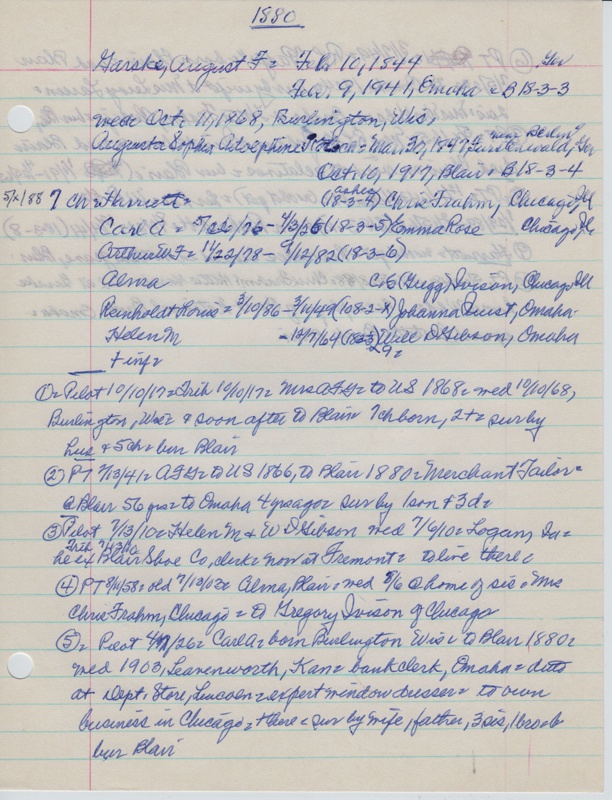 1880
Garske, August F = Feb 10, 1844 Ger
Feb. 9, 1941, Omaha = B18-3-3
wed Oct. 11, 1868, Burlington, Wis.
Augusta Sophia = Mar 30, 1847, near Ger
Oct. 10, 1917, Blair = B18-3-4
5/2/88 7 ch = Harriett = (18-3-4) ashes Chris Frahm, Chicago Ill
Carl A = 5/22/76 - 4/3/26 (18-3-5) Emma Rose Chicago Ill
Arthur W F = 11/22/78 - 9/12/82 (18-3-6)
Alma Gregg) Ivison, Chicago Ill
Reinholdt Louis = 3/10/86 - 3/11/49 (108-2-8) Johanna Quist, Omaha
Helen M - 12/7/64 Will D Gibson, Omaha
+ inf =
① = Pilot 10/10/17 = Trib 10/10/17 = Mrs AFG = to US 1868 = wed 10/10/68,
Burlington, Wis = & soon after to Blair 7 ch born, 2 + = sur by
hus & 5 ch = bur Blair
② PT 2/13/41 = AFG = to US 1866, to Blair 1880 = Merchant Tailor =
@ Blair 56 yrs = to Omaha 4 yrs ago = sur by 1 son & 3 d =
③ Pilot 7/13/10 = Helen M & W D Gibson wed 7/6/10 = Logan, Ia =
Trib 7/13/10
he ex Blair Shoe Co, clerk = now at Fremont = to live there =
④ PT 8/14/58 = old = Alma, Blair = wed 8/6 @ home of sis = Mrs
Chris Frahm, Chicago = to Gregory Ivison of Chicago
⑤ = Pilot = Carl A = born Burlington Wis = to Blair 1880 =
wed 1903, Leavenworth, Kan = bank clerk, Omaha = ditto
at Dept. Store, Lincoln = expert window dresser = to own
business in Chicago = + there = sur by wife, father, 3 sis, 1 bro =
bur Blair